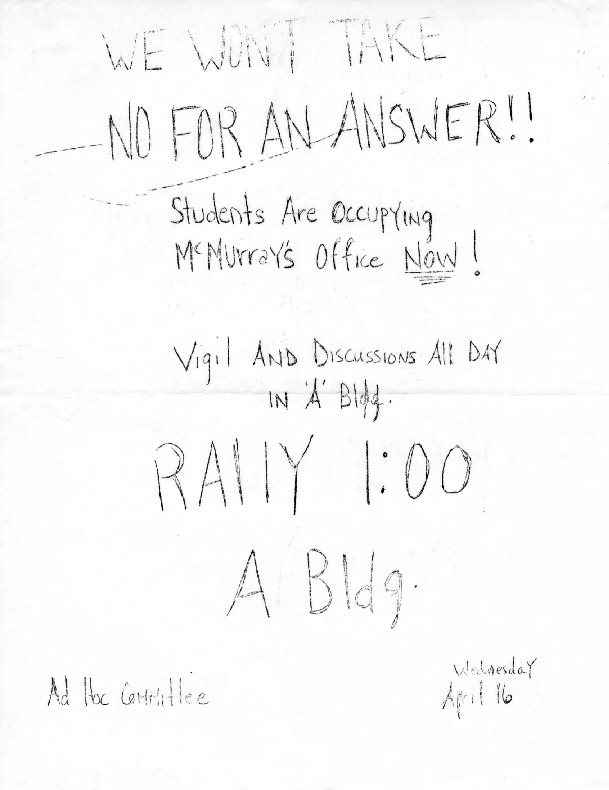 WE WON'T TAKE
NO FOR AN ANSWER!!
Students Are Occupying
McMurray's Office Now!
Vigil AND Discussions All DAY
IN 'A' Bldg.
RAllY 1:00
A Bldg.
Ad Hoc Committee
Wednesday
April 16